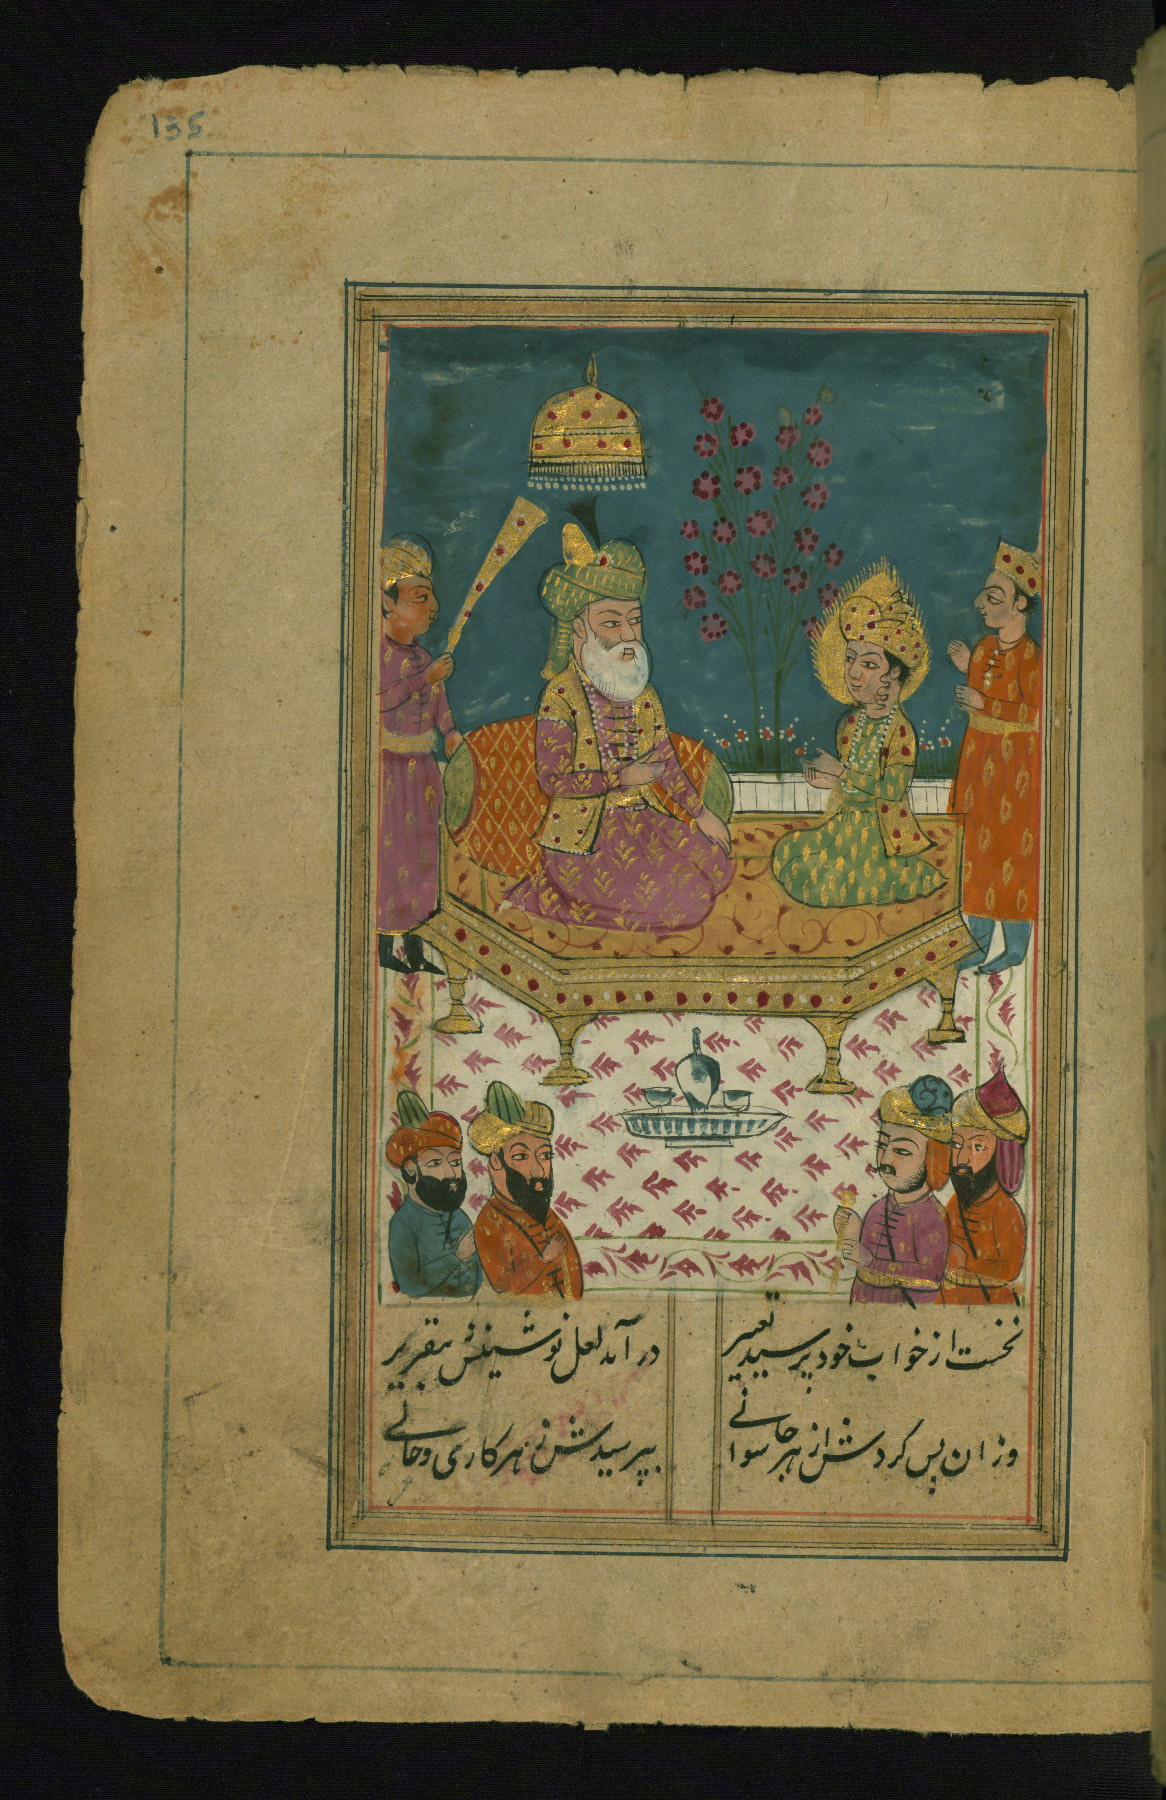 135
نخست از خواب خود پرسید تعبیر
در آمد لعل نوشینش بتقریر
وزان پس کردش از هر جا سوالی
بپرسیدش ز هر کاری و حالی